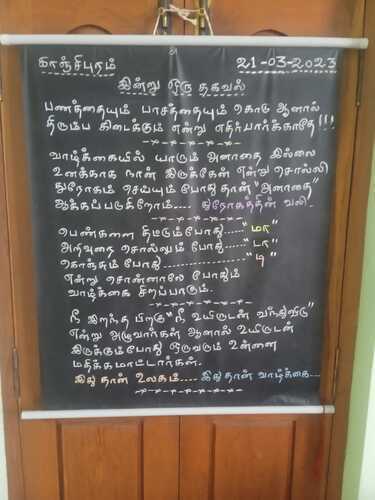 காஞ்சிபுரம் 21-03-2023
இன்று ஒரு தகவல்
பணத்தையும் பாசத்தையும் கொடு ஆனால்
திரும்ப கிடைக்கும் என்று எதிர்பார்க்காதே!!!
வாழ்க்கையில் யாரும் அனாதை இல்லை
உனக்காக நான் இருக்கேன் என்று சொல்லி
துரோகம் செய்யும் போது தான் "அனாதை"
ஆக்கப்படுகிறோம்.... துரோகத்தின் வலி.
பெண்களை திட்டும்போது......"மா"
அறிவுரை சொல்லும் போது....."டா"
கொஞ்சும் போது......................."டி"
என்று சொன்னாலே போதும்
வாழ்க்கை சிறப்பாகும்.
நீ இறந்த பிறகு "நீ உயிருடன் வந்துவிடு"
என்று அழுவார்கள் ஆனால் உயிருடன்
இருக்கும்போது ஒருவரும் உன்னை
மதிக்கமாட்டார்கள்.
இது தான் உலகம்.... இது தான் வாழ்க்கை...